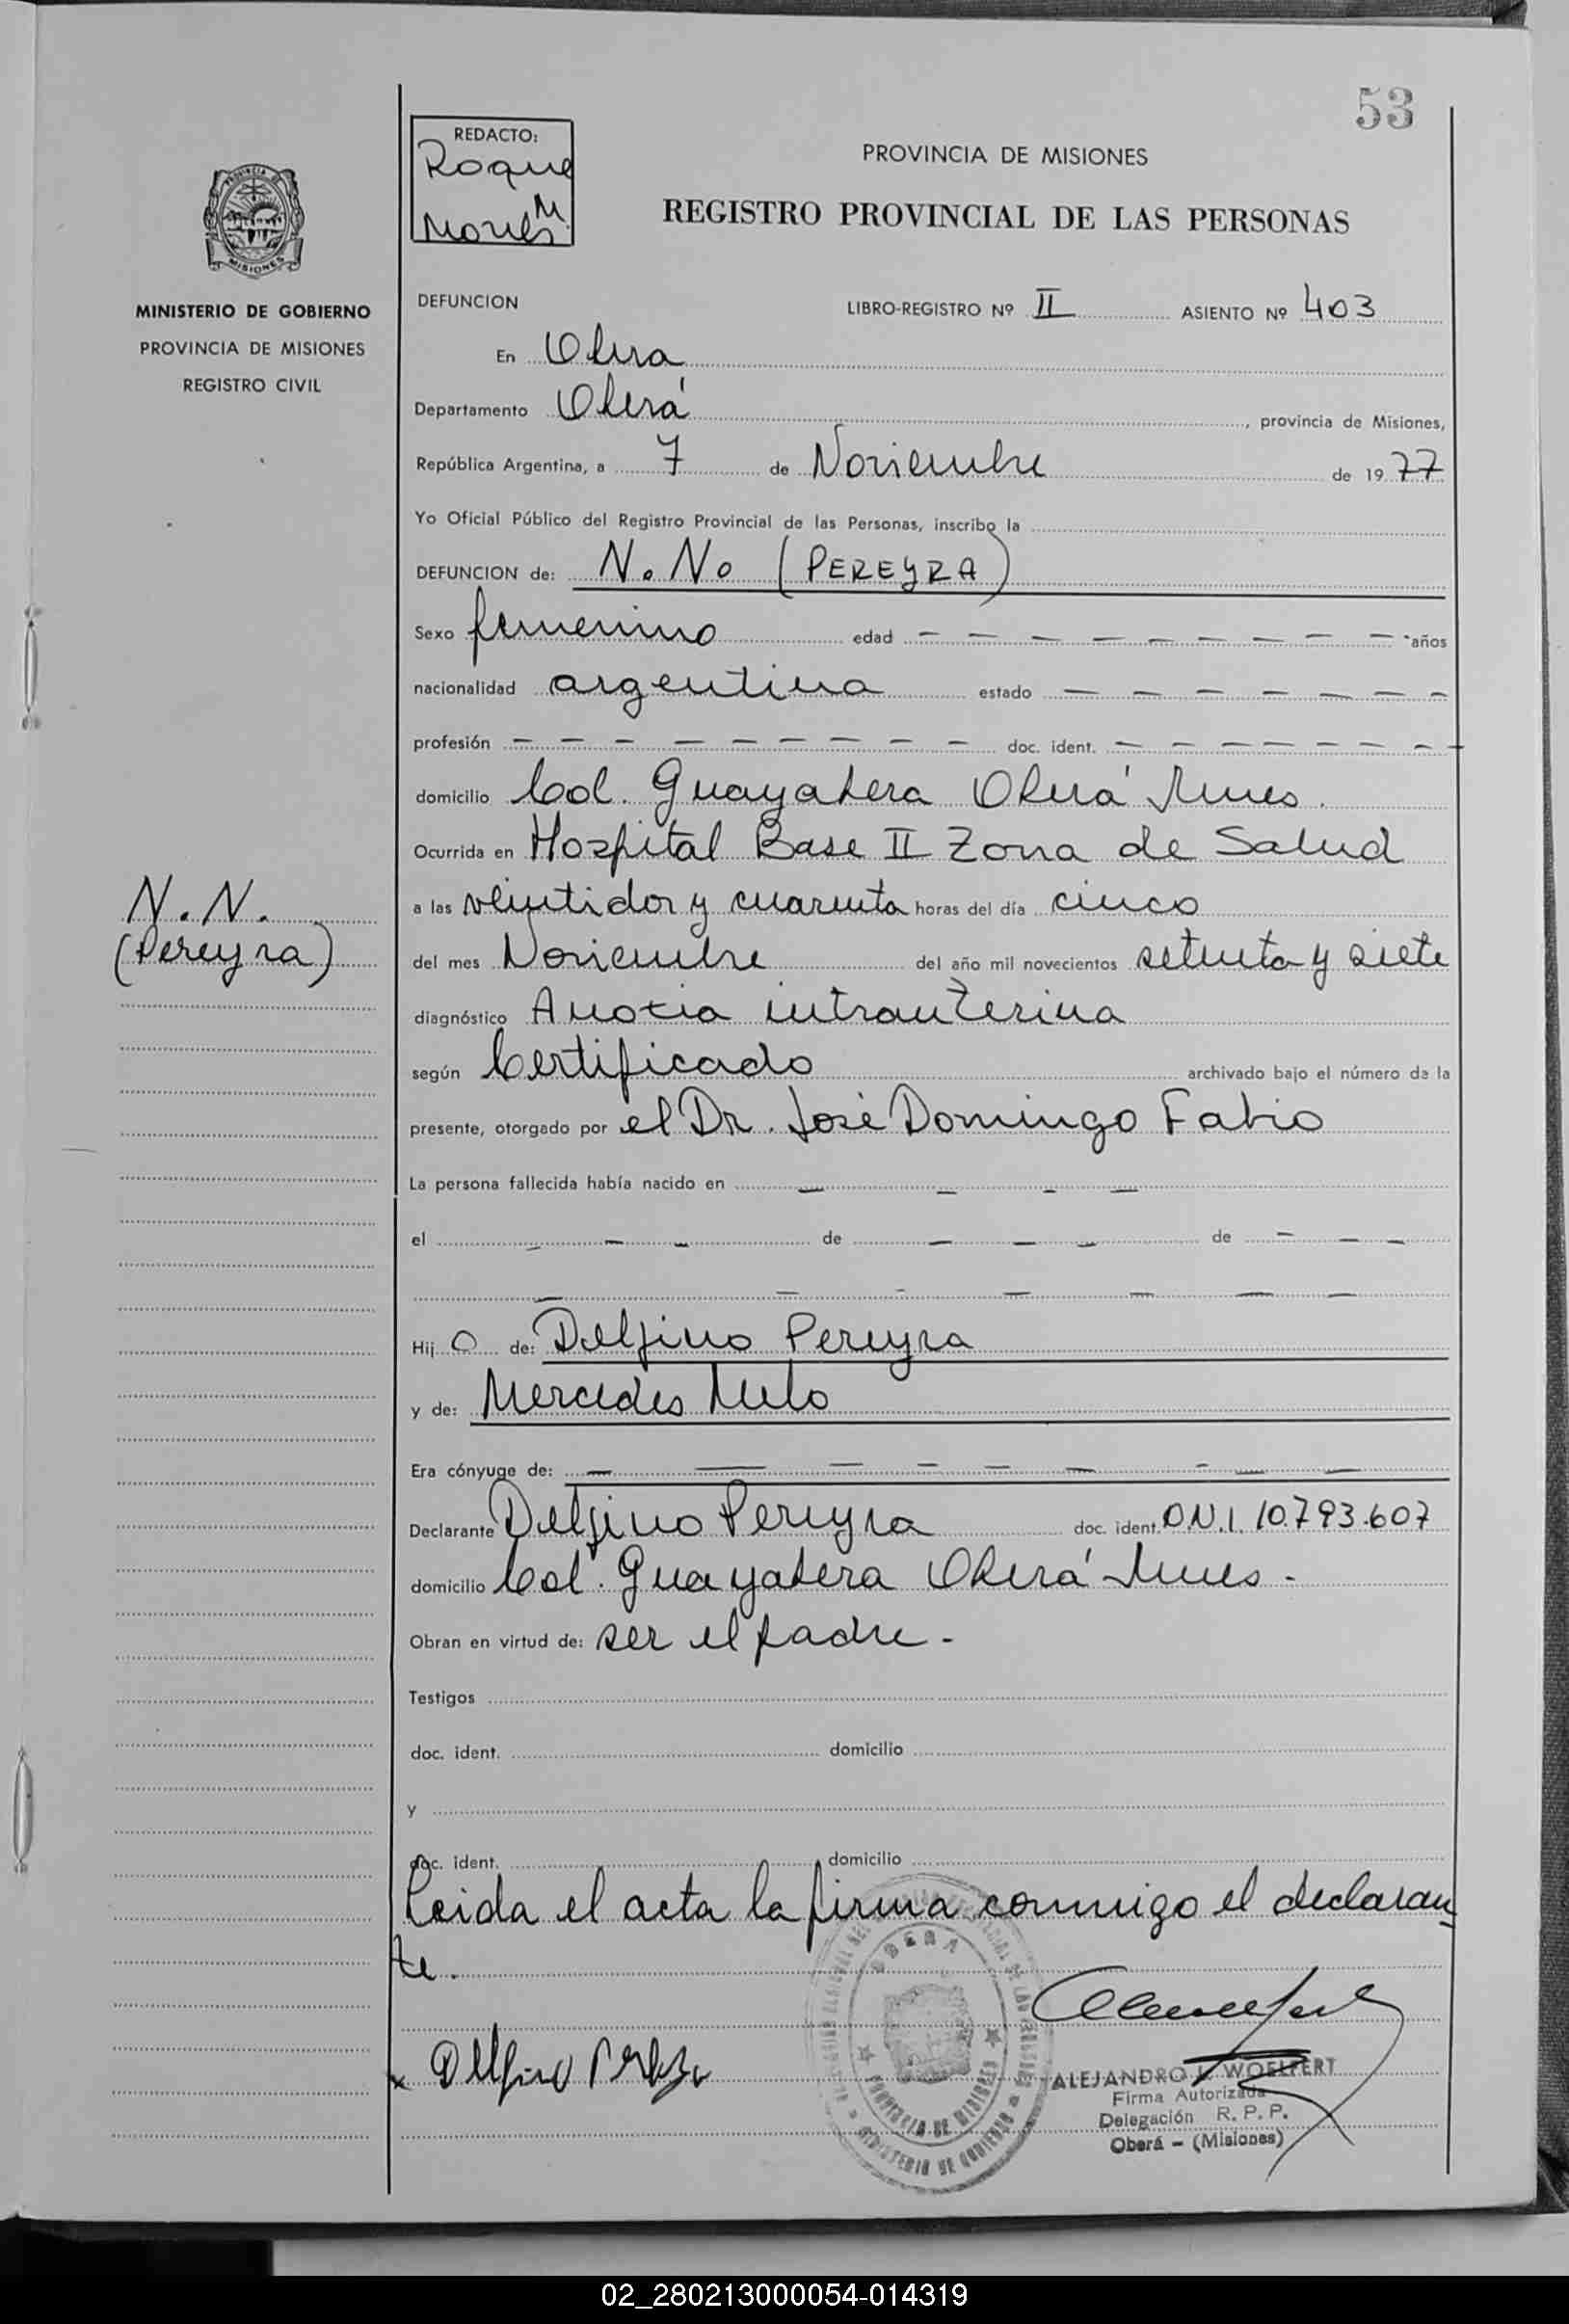 53
REDACTO:
Roque
M.
PROVINCIA DE MISIONES
REGISTRO PROVINCIAL DE LAS PERSONAS
PROVINCIA DE
MISIONES
MINISTERIO DE GOBIERNO
PROVINCIA DE MISIONES
REGISTRO CIVIL
DEFUNCION LIBRO-REGISTRO Nº II ASIENTO Nº 403
En Obera
Departamento Oberá, provincia de Misiones,
República Argentina, a 7 de Noviembre de 1977
Yo Oficial Público del Registro Provincial de las Personas, inscribo la
DEFUNCION de: N. No (PEREYRA)
Sexo femenino edad — — — — — — — — años
nacionalidad argentina estado — — — — — — —
profesión — — — — — — — — — doc. ident. — — — — — — —
domicilio Col. Guayabera Oberá Mnes.
Ocurrida en Hospital Base II Zona de Salud
N.N.
(Pereyra)
a las veintidos y cuarenta horas del día cinco
del mes Noviembre del año mil novecientos setenta y siete
diagnóstico Anoxia intrauterina
según Certificado archivado bajo el número de la
presente, otorgado por el Dr. José Domingo Fabio
La persona fallecida había nacido en — — — —
el — — — de — — — de — — —
— — — — — — —
Hij o de: Delfino Pereyra
y de: Mercedes Melo
Era cónyuge de: — — — — — — — — —
Declarante Delfino Pereyra doc. ident. D.N.I. 10.793.607
domicilio Col. Guayabera Oberá Mnes -
Obran en virtud de: ser el padre -
Testigos
doc. ident. domicilio
y
doc. ident. domicilio
Leida el acta la firma conmigo el declaran
te.
OBERA
PROVINCIA DE MISIONES
MINISTERIO DE GOBIERNO
x Delfino
ALEJANDRO WOELFERT
Firma Autorizada
Delegación R. P. P.
Oberá - (Misiones)
02_280213000054-014319